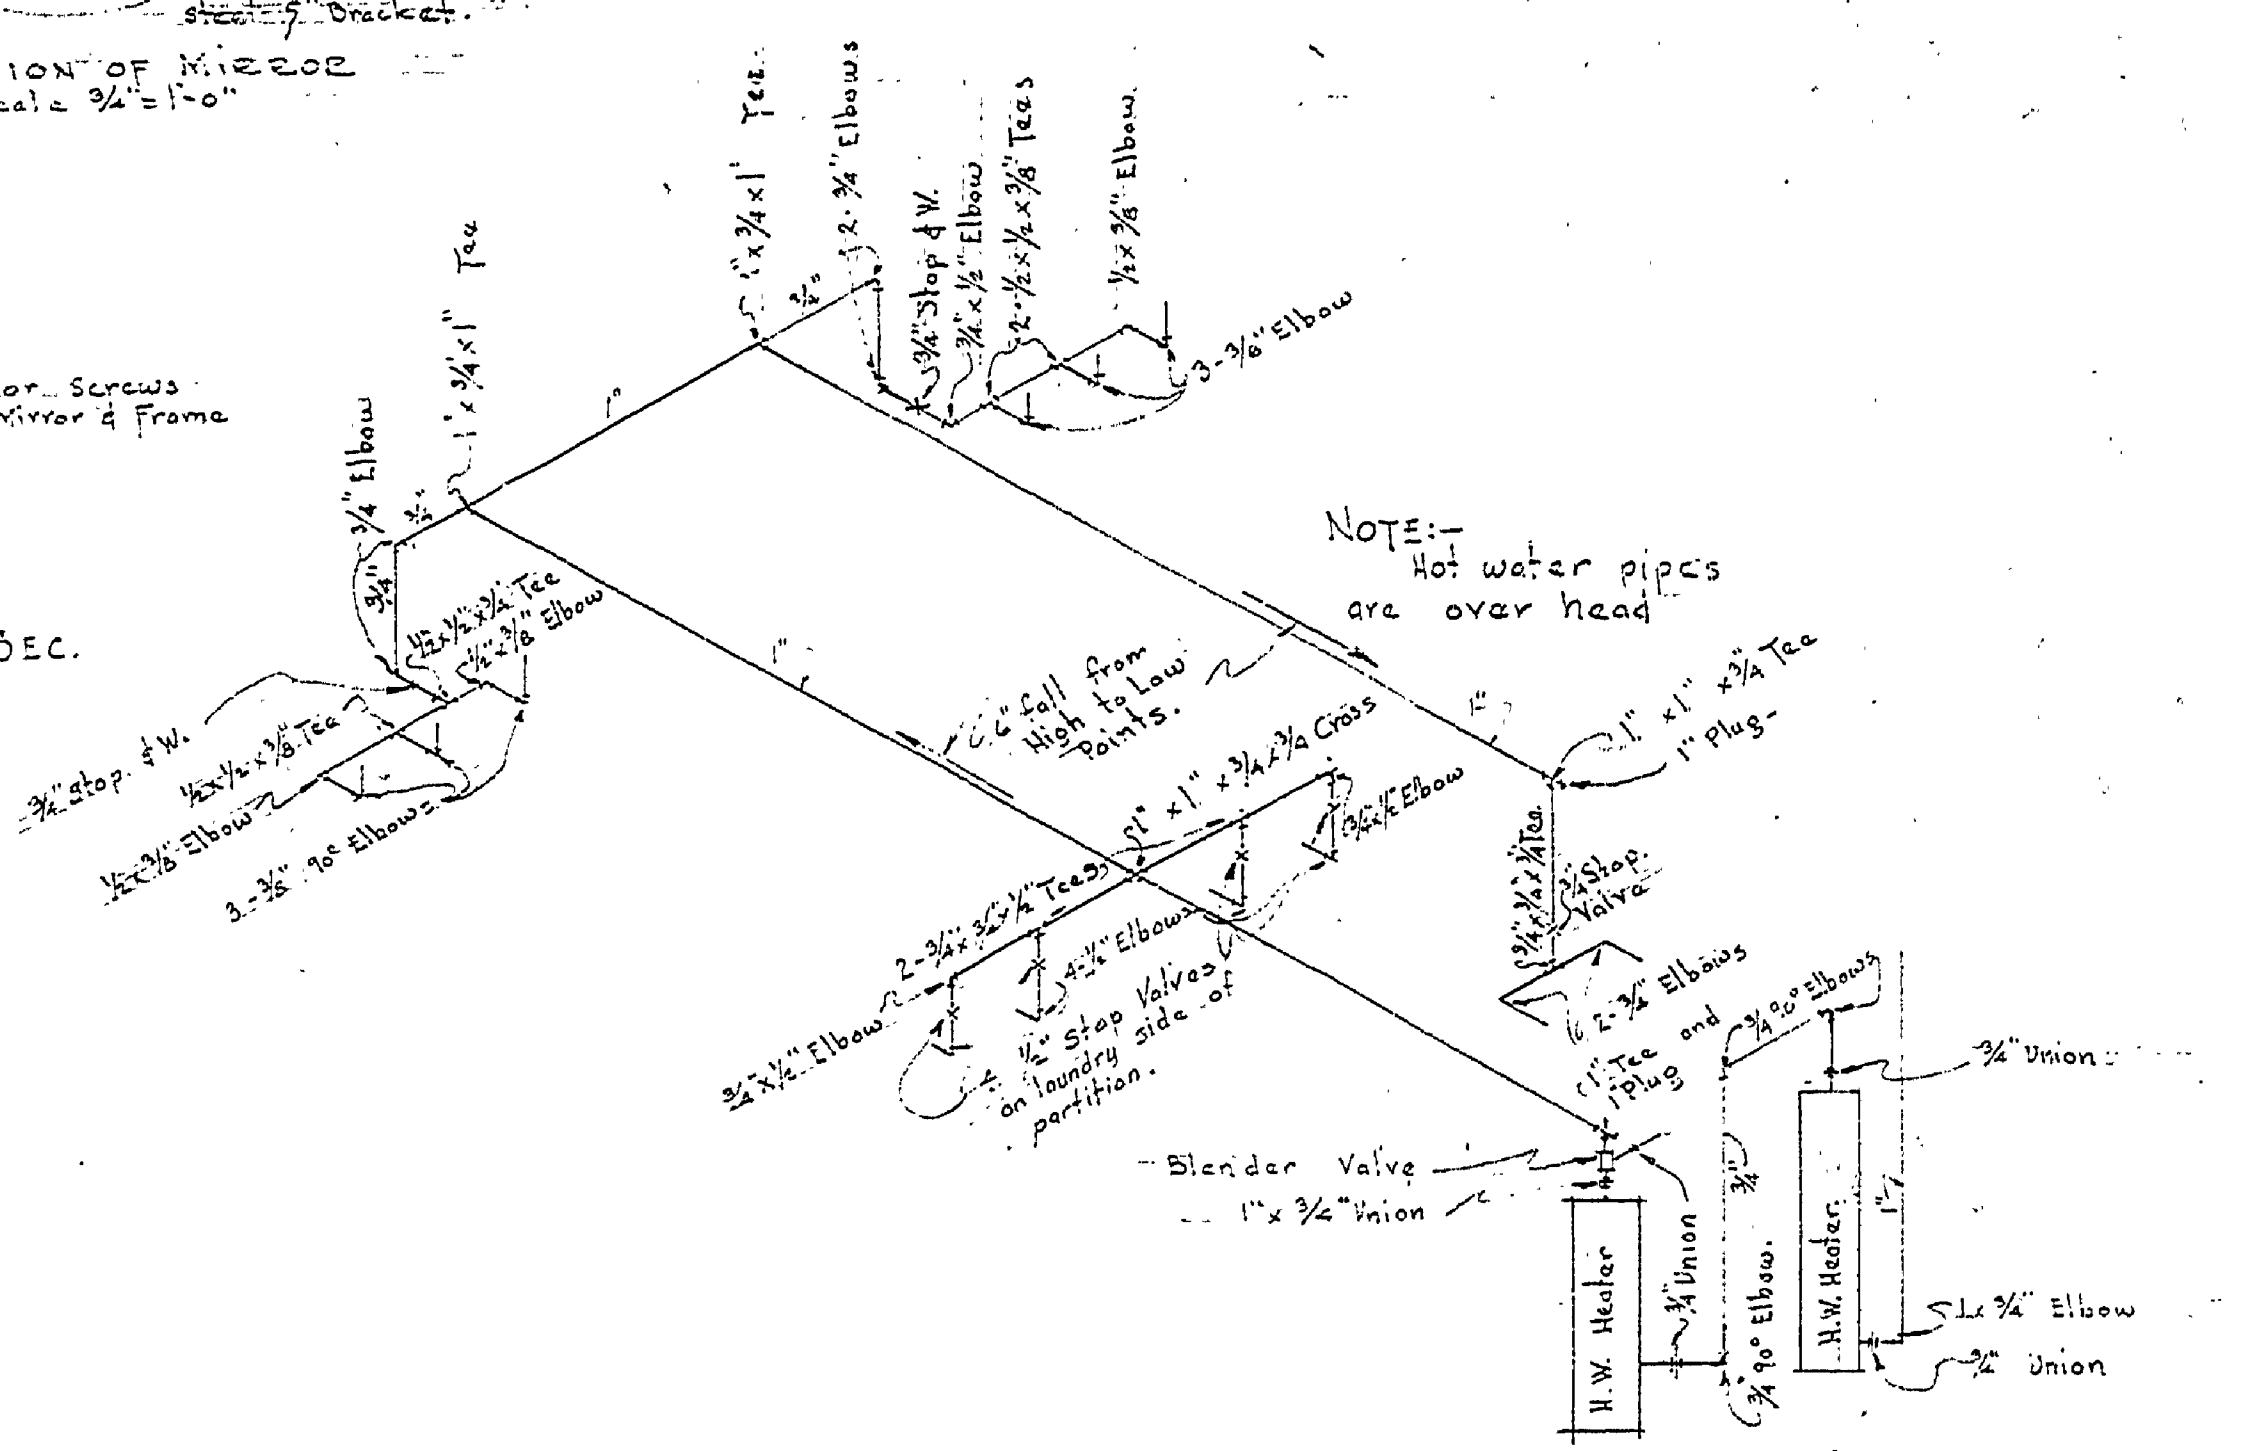 Bracket.
ION OF MIRROR
cale 3/4"=1'-0"
or Screws
Mirror & Frame
DEC.
1" x 3/4 x 1" Tee
2-3/4" Elbows
3/4" Stop & W.
3/4" x 1/2" Elbow
2-1/2 x 1/2 x 3/8" Tees
1/2 x 3/8" Elbow.
3/4"
3-3/8" Elbow
1" x 3/4" x 1" Tee
1"
3/4" Elbow
3/4"
3/4"
1/2" x 1/2" x 3/4 Tee
1/2" x 3/8" Elbow
3/4" Stop. & W.
1/2 x 1/2 x 3/8 Tee
1/2 x 3/8" Elbow
3-3/8" 90° Elbow
NOTE:-
Hot water pipes
are over head
1"
6" fall from
High to Low
Points.
1"
1" x 1" x 3/4 Tee
1" Plug
1" x 1" x 3/4 x 3/4 Cross
3/4 x 1/2 Elbow
3/4 x 3/4 x 3/4 Tee.
3/4 Stop
Valve
4-1/2" Elbows
3/4 x 1/2" Elbow
1/2" Stop Valves
on laundry side of
partition.
2-3/4" Elbows
1" Tee and
1" Plug
3/4 90° Elbows
3/4" Union
Blender Valve
1" x 3/4" Union
H.W. Heater
3/4 Union
3/4"
3/4" 90° Elbow.
H.W. Heater
1"
1 x 3/4" Elbow
3/4" Union